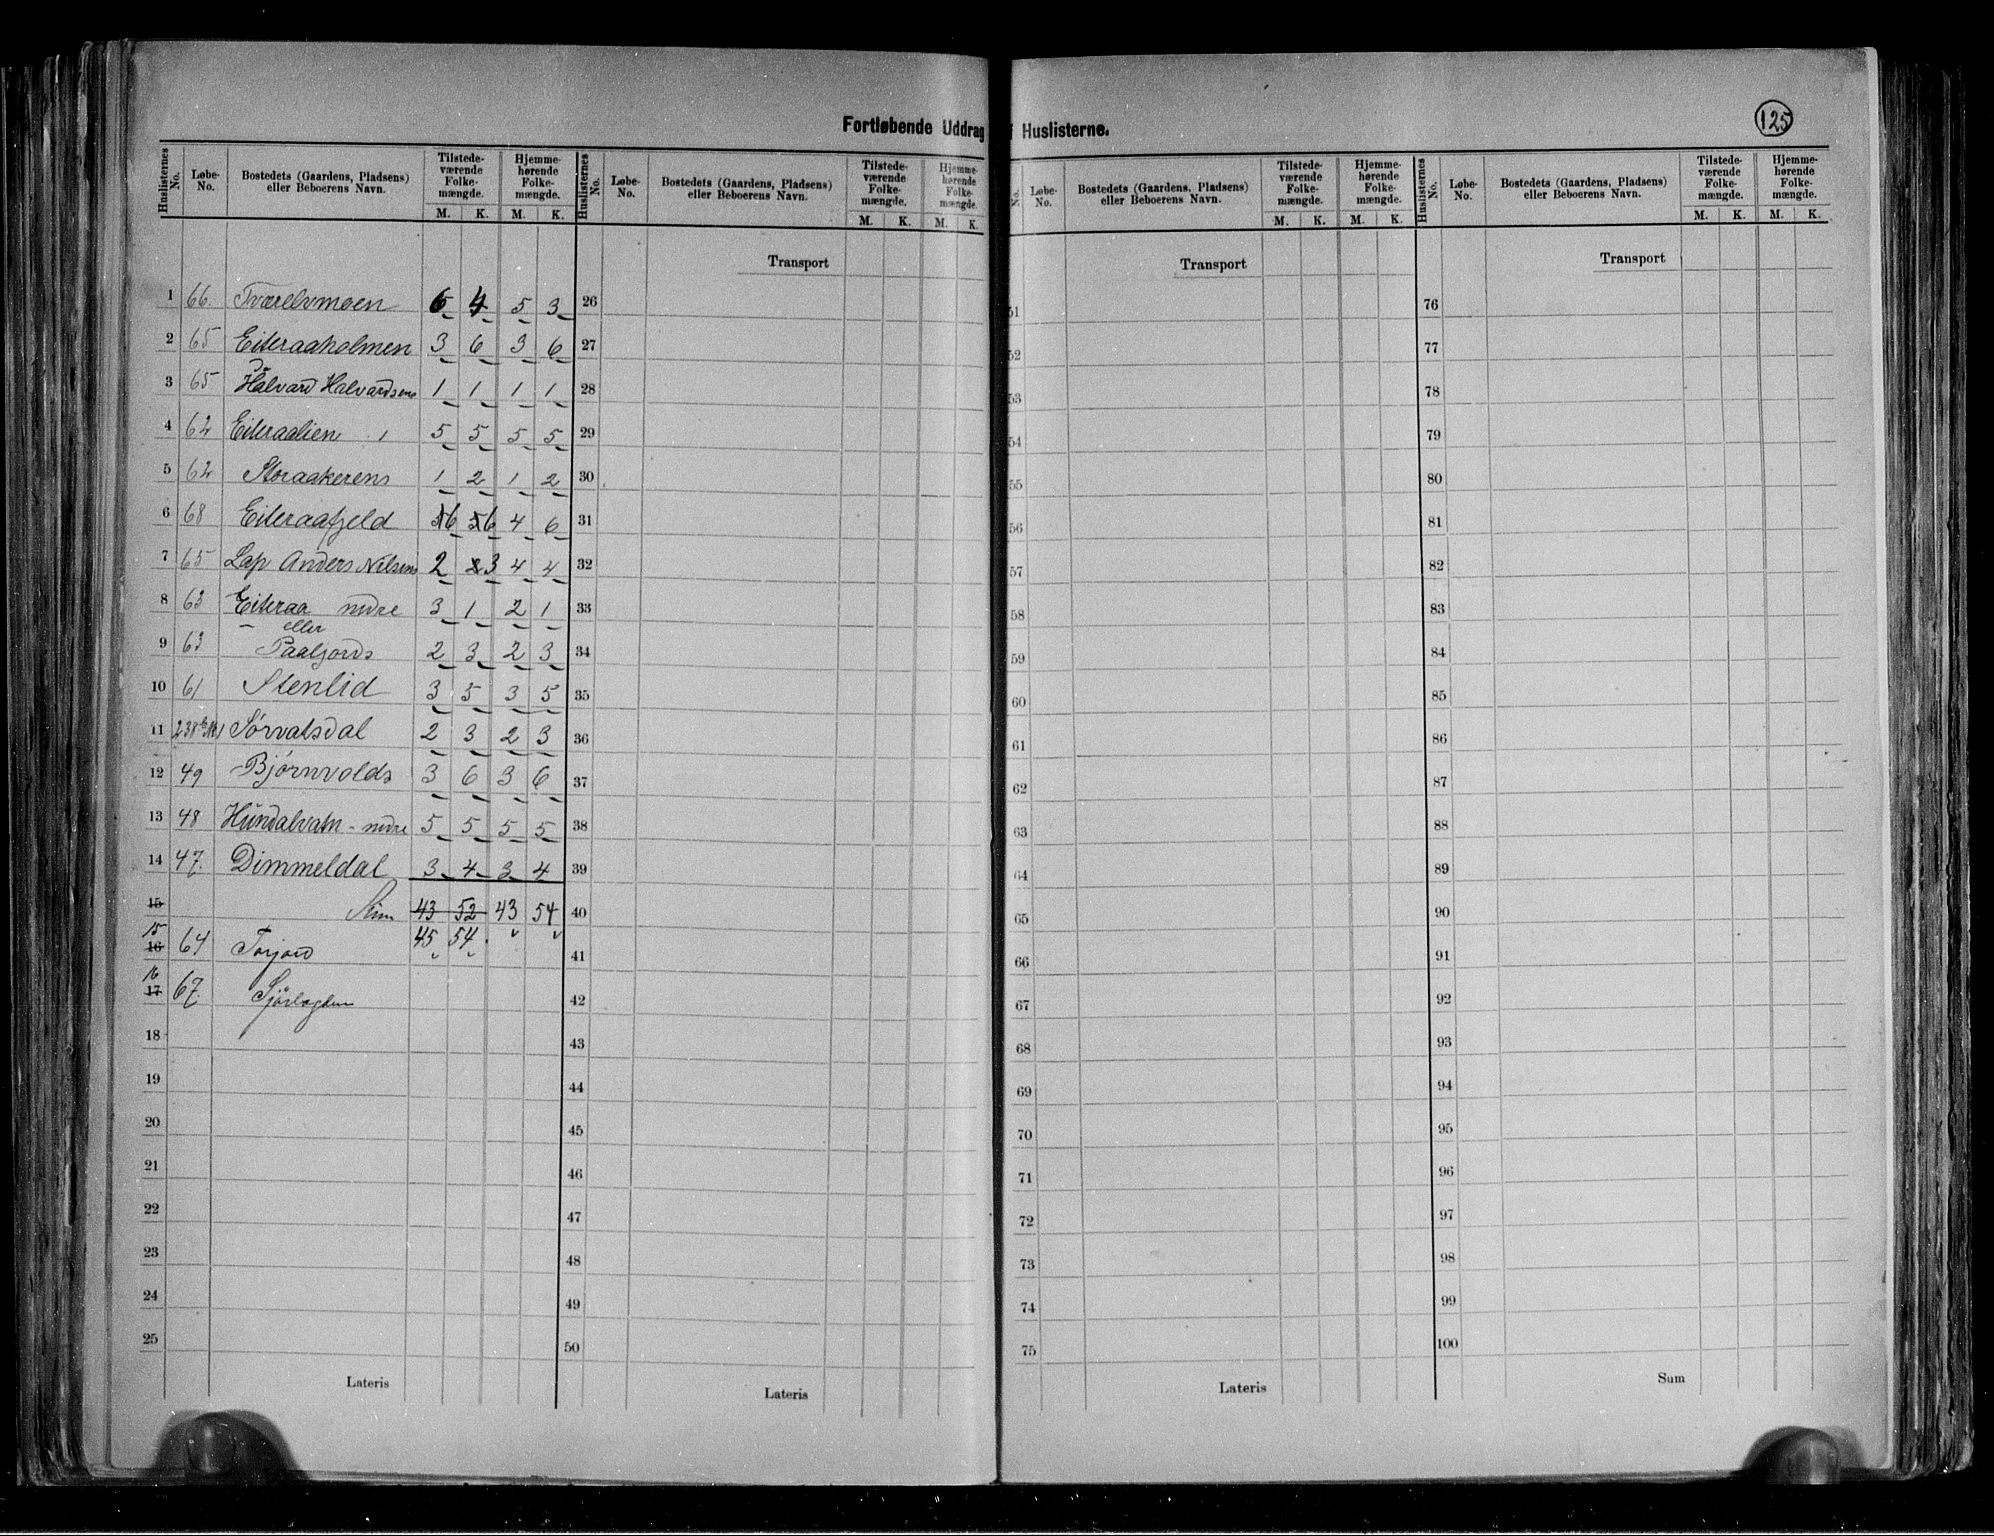 Fortløbende Uddrag f Huslisterne.
125
Huslisternes No. Løbe-No. Bostedets (Gaardens, Pladsens) eller Beboerens Navn. Tilstedeværende Folkemængde. M. K. Hjemmehørende Folkemængde. M. K.
Huslisternes No. Løbe-No. Bostedets (Gaardens, Pladsens) eller Beboerens Navn. Tilstedeværende Folkemængde. M. K. Hjemmehørende Folkemængde. M. K.
No. Løbe-No. Bostedets (Gaardens, Pladsens) eller Beboerens Navn. Tilstedeværende Folkemængde. M. K. Hjemmehørende Folkemængde. M. K.
Huslisternes No. Løbe-No. Bostedets (Gaardens, Pladsens) eller Beboerens Navn. Tilstedeværende Folkemængde. M. K. Hjemmehørende Folkemængde. M. K.
1 66. Tværelvmoen 6 4 5 3
2 65 Eiteraaholmen 3 6 3 6
3 65 Halvard Halvardsens 1 1 1 1
4 62 Eiteraalien 5 5 5 5
5 62 Storaakerens 1 2 1 2
6 68 Eiteraafjeld 5 6 5 6 4 6
7 65 Lap Anders Nilsens 2 2 3 4 4
8 63 Eiteraa nedre 3 1 2 1
9 63 - eller Paaljords 2 3 2 3
10 61 Stenlid 3 5 3 5
11 238 Sørvatsdal 2 3 2 3
12 49 Bjørnvolds 3 6 3 6
13 48 Hundalvatn - nedre 5 5 5 5
14 47. Dimmeldal 3 4 3 4
15 Sum 43 52 43 54
15 16 64 Torjord 45 54
16 17 67.
18
19
20
21
22
23
24
25
Lateris
Transport
26
27
28
29
30
31
32
33
34
35
36
37
38
39
40
41
42
43
44
45
46
47
48
49
50
Lateris
Transport
51
52
53
54
55
56
57
58
59
60
61
62
63
64
65
66
67
68
69
70
71
72
73
74
75
Lateris
Transport
76
77
78
79
80
81
82
83
84
85
86
87
88
89
90
91
92
93
94
95
96
97
98
99
100
Sum